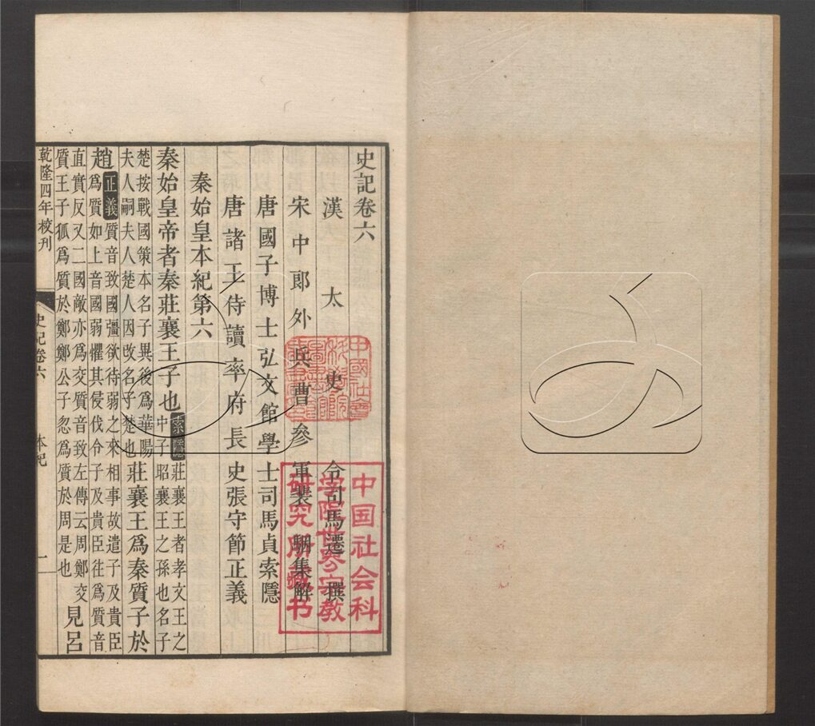 史記卷六
漢太史令司馬遷撰
宋中郎外兵曹參軍裴駰集解
唐國子博士弘文館學士司馬貞索隱
唐諸王侍讀率府長史張守節正義
秦始皇本紀第六
秦始皇帝者秦莊襄王子也
索隱莊襄王者孝文王之
中子昭襄王之孫也名子
楚按戰國策本名子異後爲華陽
夫人嗣夫人楚人因改名子楚也
莊襄王爲秦質子於
趙
正義質音致國彊欲待弱之來相事故遣子及貴臣
爲質如上音國弱懼其侵伐令子及貴臣往爲質音
直實反又二國敵亦爲交質音致左傳云周鄭交
質王子狐爲質於鄭鄭公子忽爲質於周是也
見呂
乾隆四年校刊
史記卷六
本紀
一
中国社会科
学院世界宗教
研究所藏书
中國社會